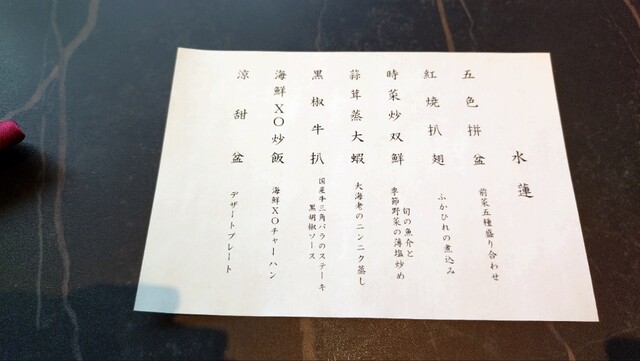 水蓮
五色拼盆
前菜五種盛り合わせ
紅燒扒翅
ふかひれの煮込み
時菜炒双鮮
旬の魚介と
季節野菜の薄塩炒め
蒜茸蒸大蝦
大海老のニンニク蒸し
黒椒牛扒
国産牛三角バラのステーキ
黒胡椒ソース
海鮮XO炒飯
海鮮XOチャーハン
涼甜盆
デザートプレート